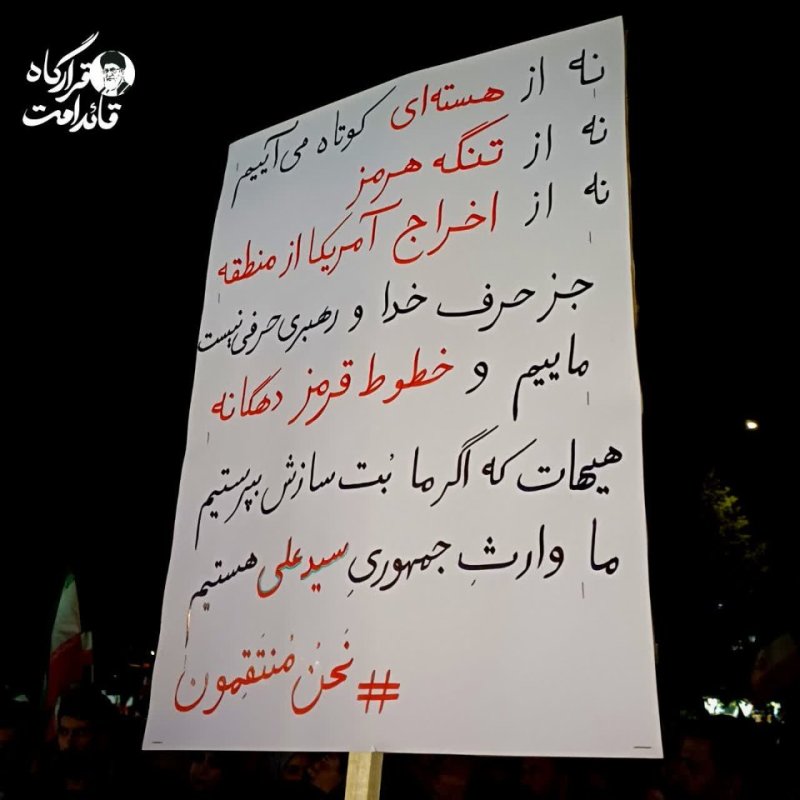 قرارگاه
قائد امت
نه از هسته‌ای کوتاه می‌آییم
نه از تنگه هرمز
نه از اخراج آمریکا از منطقه
جز حرف خدا و رهبری حرفی نیست
ماییم و خطوط قرمز دهگانه
هیهات که اگر ما بُت سازش بپرستیم
ما وارثِ جمهوریِ سید علی هستیم
#نَحنُ مُنتَقِمون